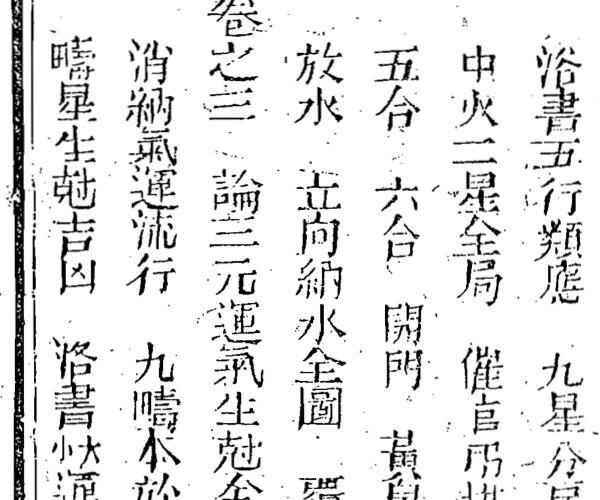 洛書五行類應　九星分
中火二星全局　催官
五合　六合　開門　黃
放水　立向納水全圖
卷之三　論三元運氣生尅全
消納氣運流行　九疇本
疇星生尅吉凶　洛書